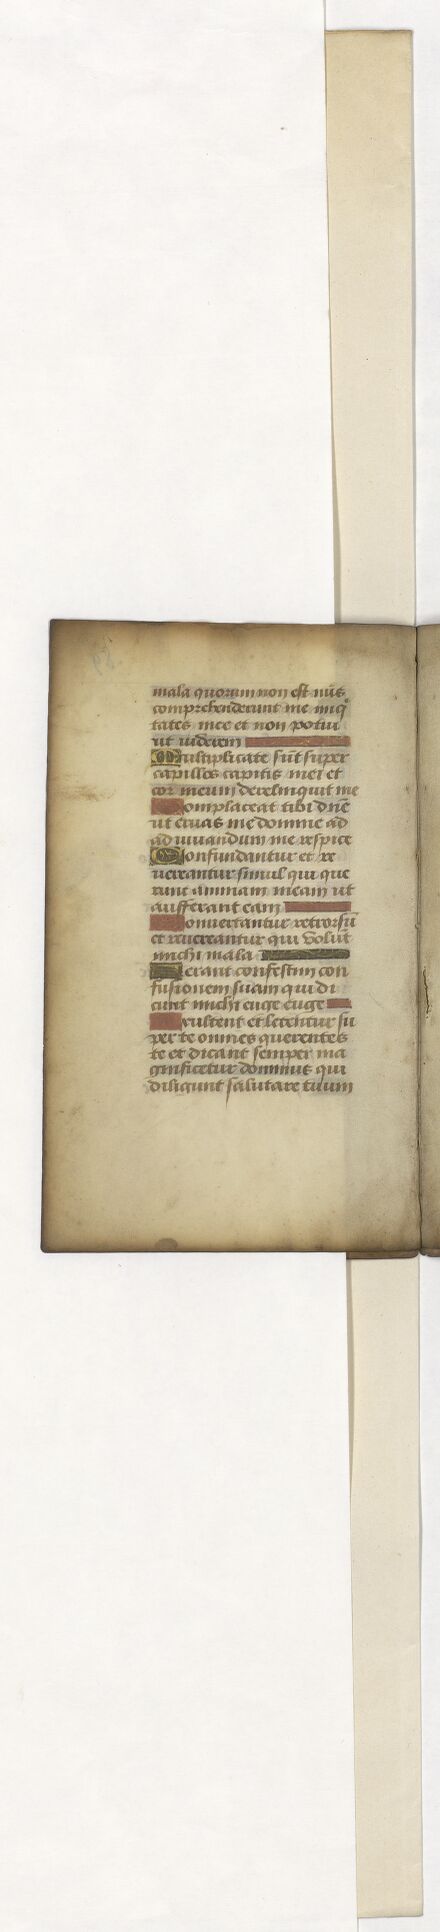 mala quorum non est nūs
comprehenderunt me iniq
tates mee et non potui
ut viderem
Multiplicate sūt super
capillos capitis mei et
cor meum dereliquit me
Complaceat tibi dn̄e
ut eruas me domine ad
adiuuandum me respice
Confundantur et re
uereantur simul qui que
runt animam meam ut
aufferant eam
Conuertantur retrorsū
et reuereantur qui volūt
michi mala
Ferant confestim con
fusionem suam qui di
cunt michi euge euge
Exultent et letentur su
per te omnes querentes
te et dicant semper ma
gnificetur dominus qui
diligunt salutare tuum